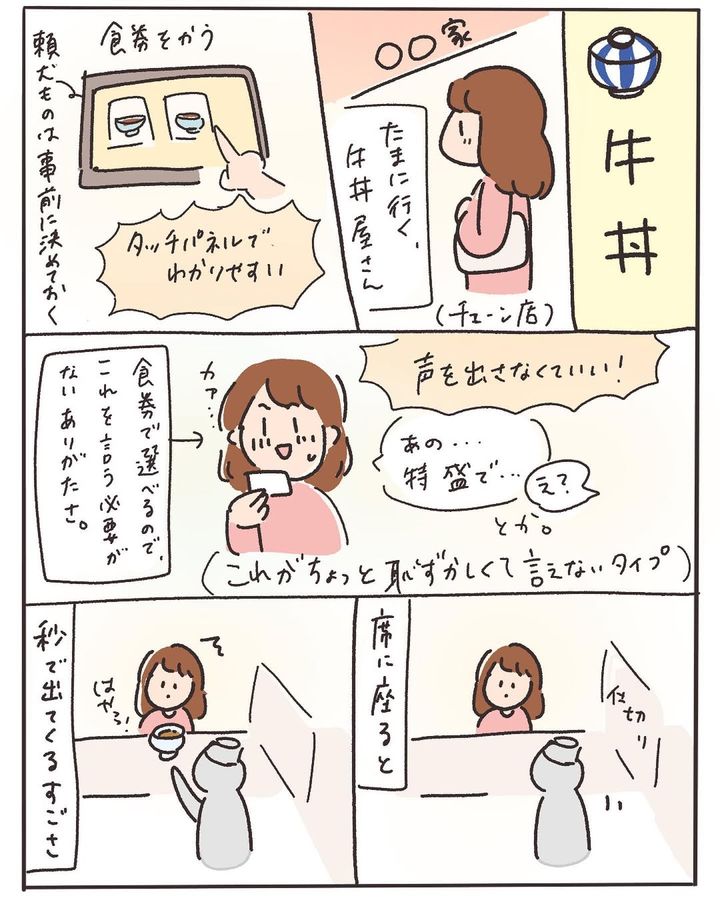 牛丼
○○家
たまに行く、
牛丼屋さん
(チェーン店)
食券をかう
頼むものは事前に決めておく
タッチパネルで
わかりやすい
声を出さなくていい！
あの・・・
特盛で・・・
え？
とか。
(これがちょっと恥ずかしくて言えないタイプ)
カァ・・・
食券で選べるので、
これを言う必要が
ないありがたさ。
席に座ると
仕切り
はやっ！
秒で出てくるすごさ